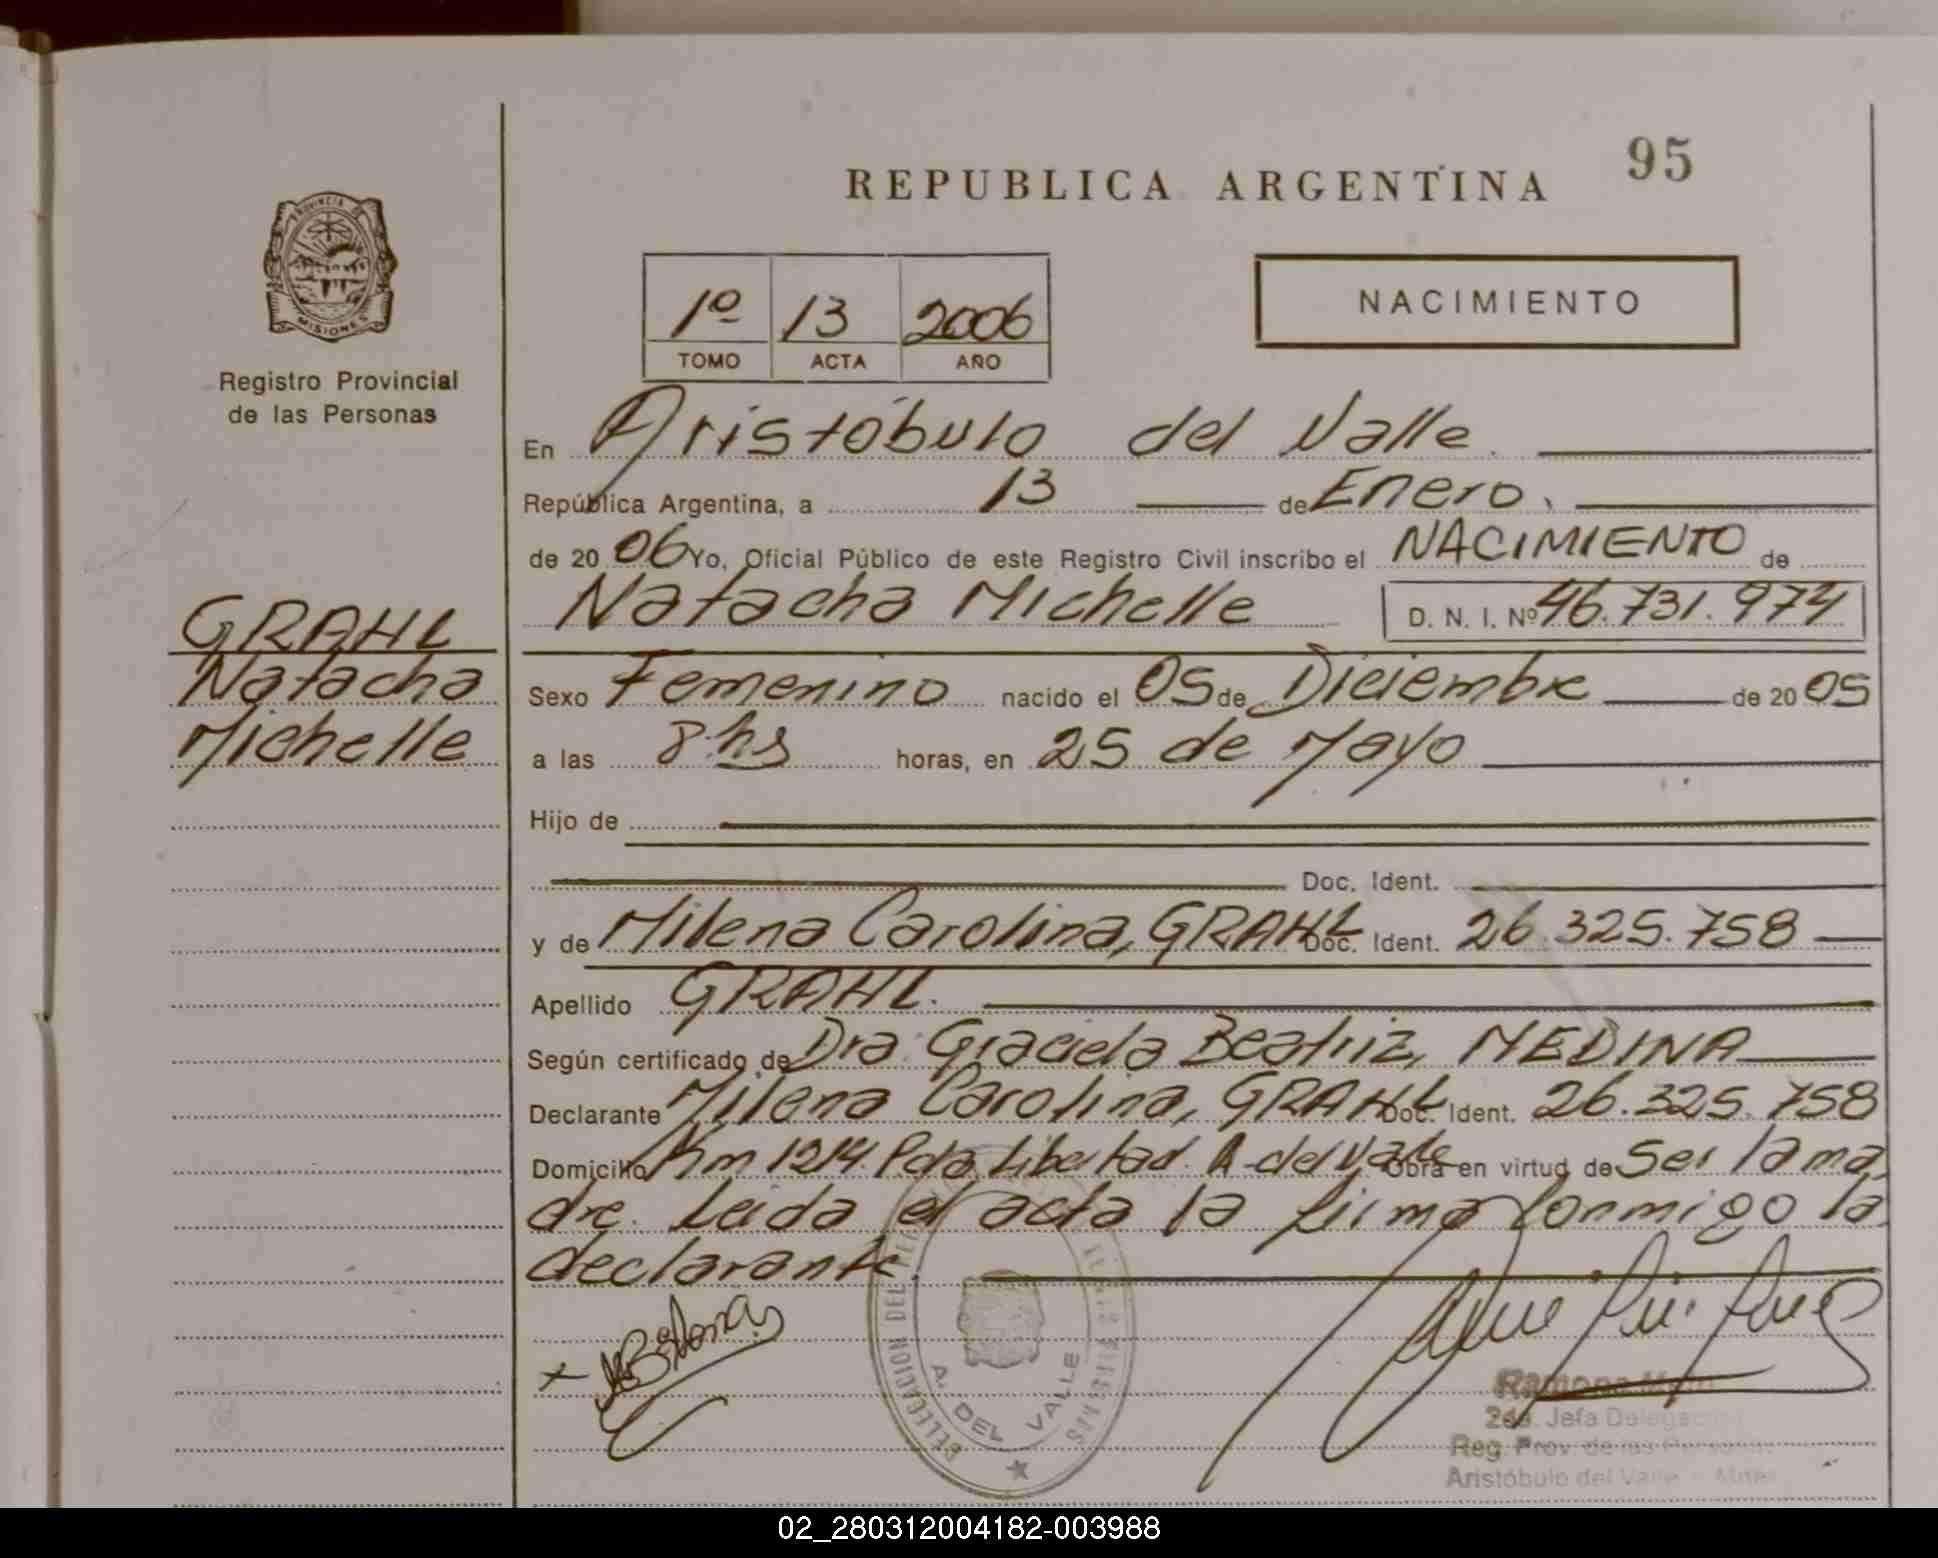 95
REPUBLICA ARGENTINA
PROVINCIA DE
MISIONES
Registro Provincial
de las Personas
NACIMIENTO
1º 13 2006
TOMO ACTA AÑO
En Aristóbulo del Valle.
República Argentina, a 13 de Enero.
de 2006 Yo, Oficial Público de este Registro Civil inscribo el NACIMIENTO de
Natacha Michelle D. N. I. Nº 46.731.974
GRAHL
Natacha
Michelle
Sexo Femenino nacido el 05 de Diciembre de 2005
a las 8 hs horas, en 25 de Mayo
Hijo de
Doc. Ident.
y de Milena Carolina, GRAHL Doc. Ident. 26.325.758
Apellido GRAHL.
Según certificado de Dra. Graciela Beatriz, MEDINA
Declarante Milena Carolina, GRAHL Doc. Ident. 26.325.758
Domicilio Km 1214. Pcia. Libertad. A. del Valle Obra en virtud de Ser la ma
dre. Leida el acta la firma conmigo la
declarante.
DELEGACION DEL
A. DEL VALLE
Ramona
2da. Jefa Delegación
Reg. Prov. de las Personas
Aristóbulo del Valle - Mnes
02_280312004182-003988